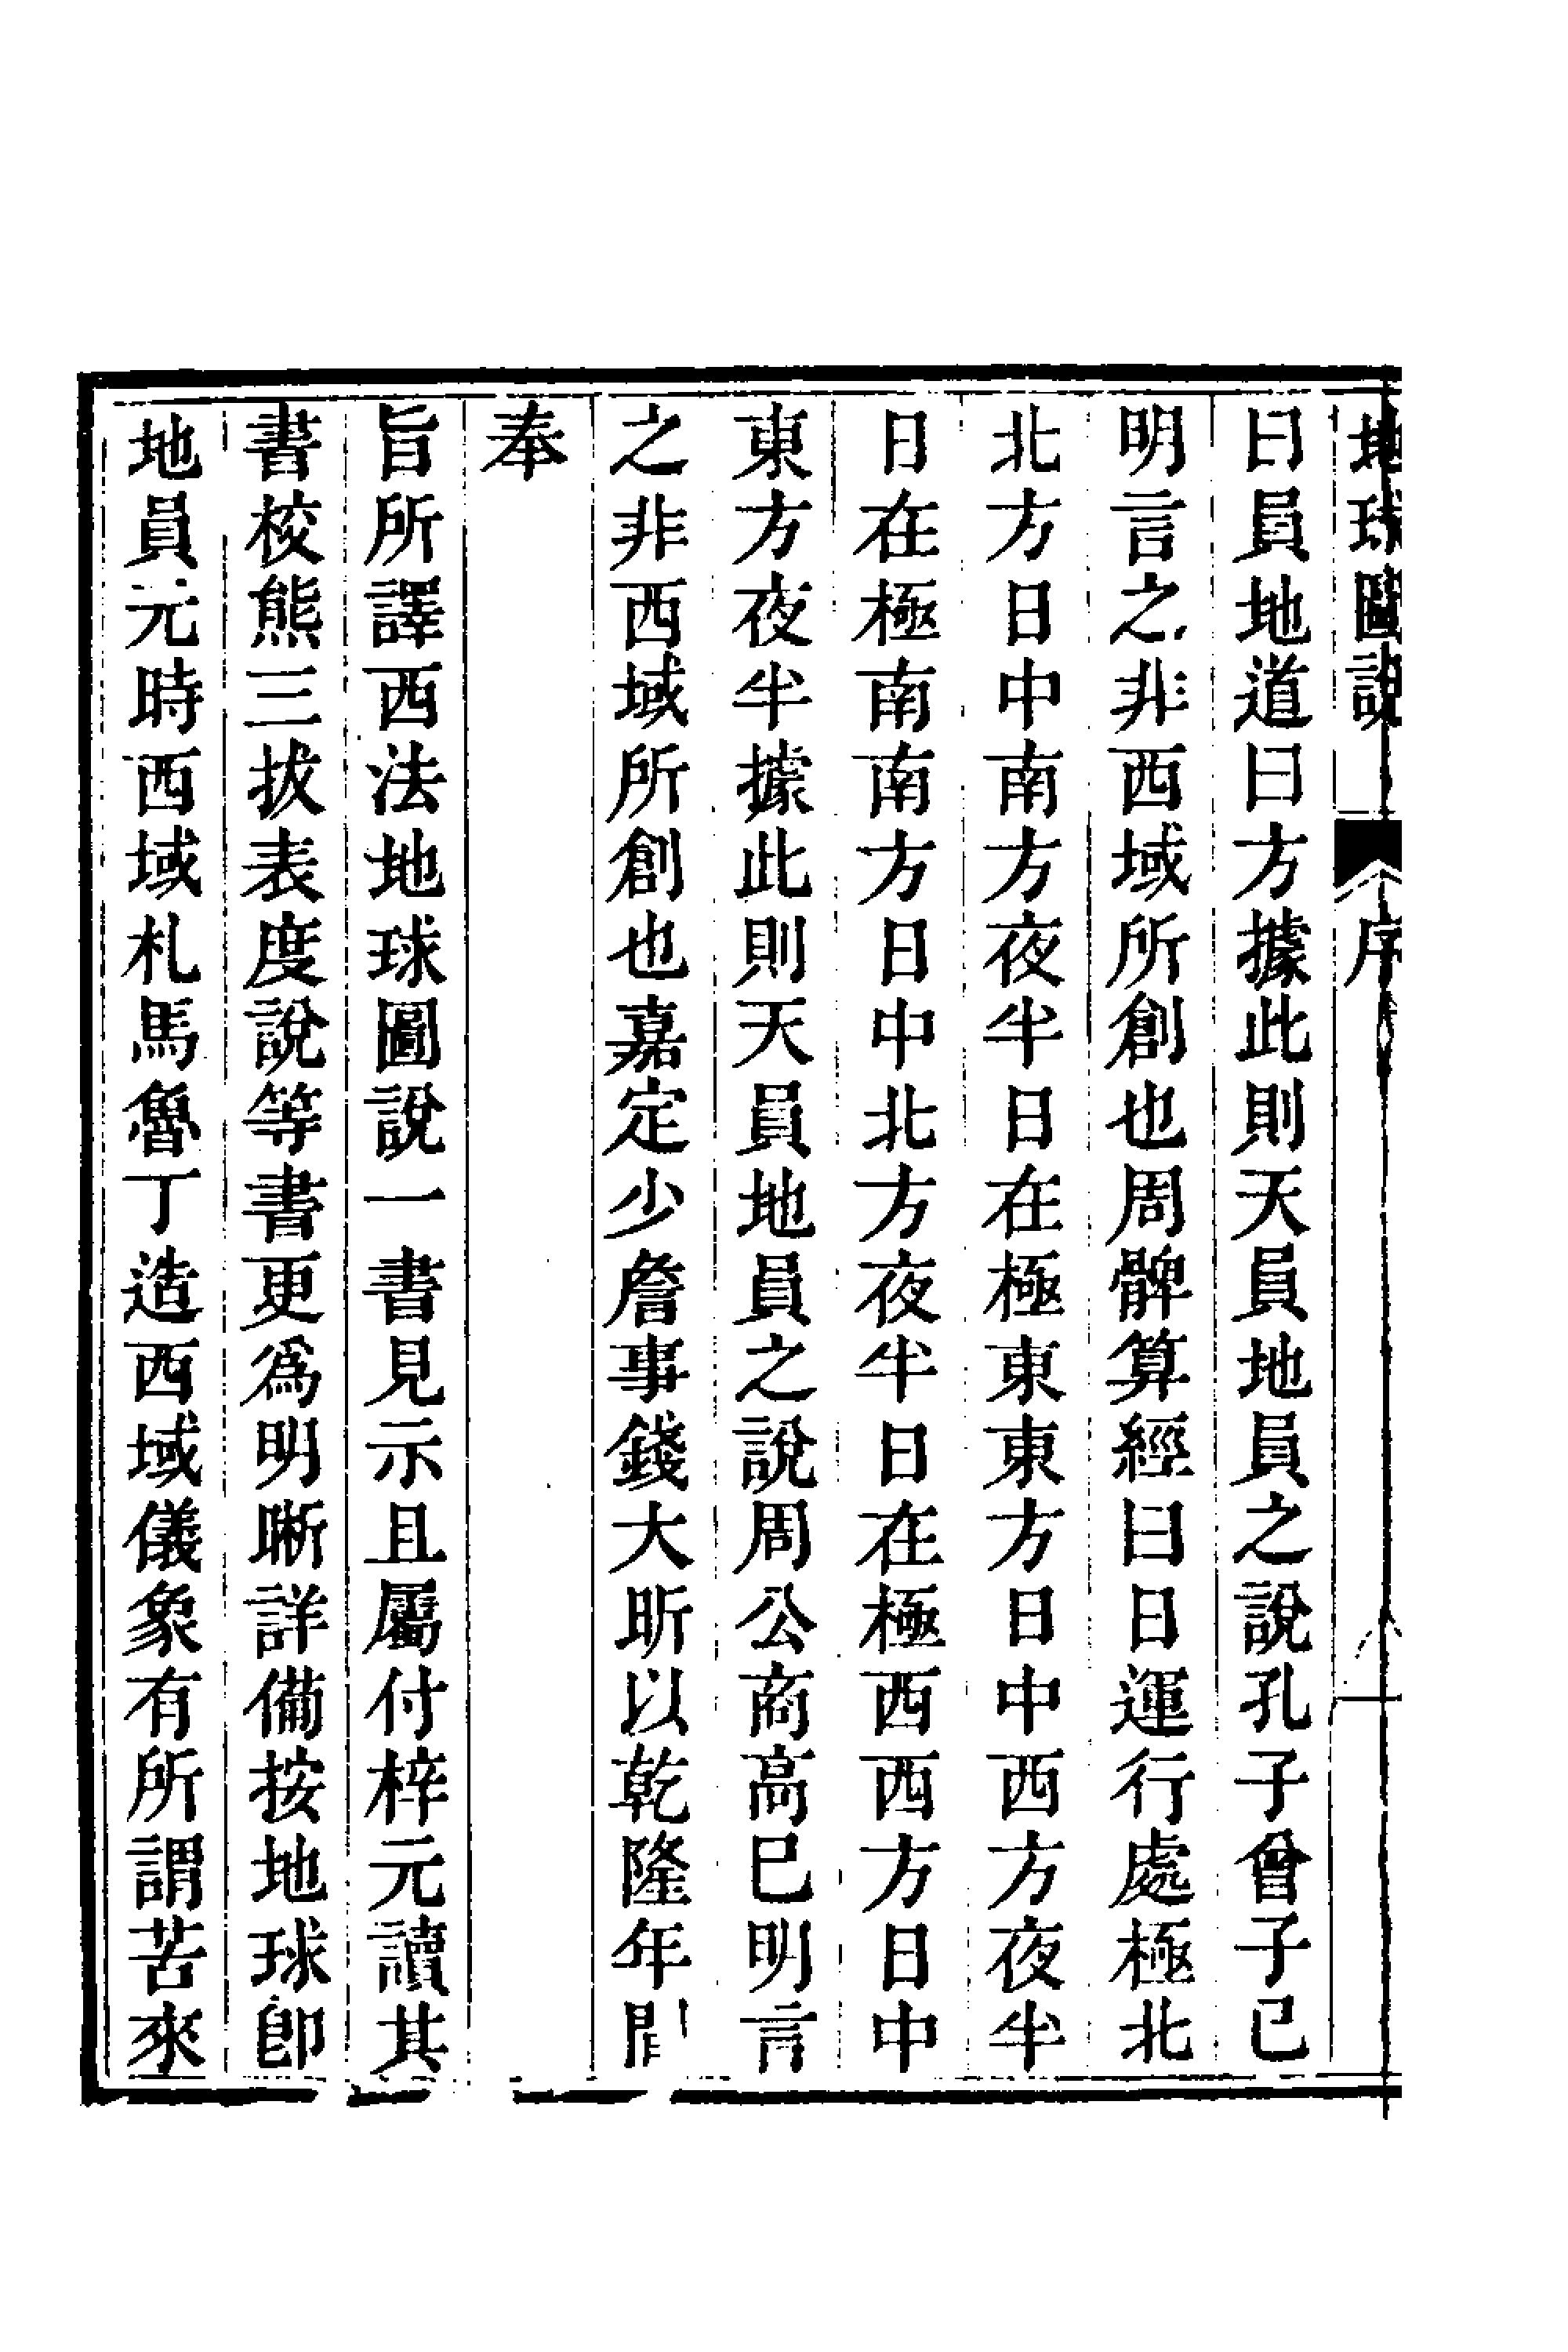 地球圖說 序
曰員地道曰方據此則天員地員之說孔子曾子已
明言之非西域所創也周髀算經曰日運行處極北
北方日中南方夜半日在極東東方日中西方夜半
日在極南南方日中北方夜半日在極西西方日中
東方夜半據此則天員地員之說周公商高已明言
之非西域所創也嘉定少詹事錢大昕以乾隆年間
奉
旨所譯西法地球圖說一書見示且屬付梓元讀其
書校熊三拔表度說等書更爲明晰詳備按地球卽
地員元時西域札馬魯丁造西域儀象有所謂苦來